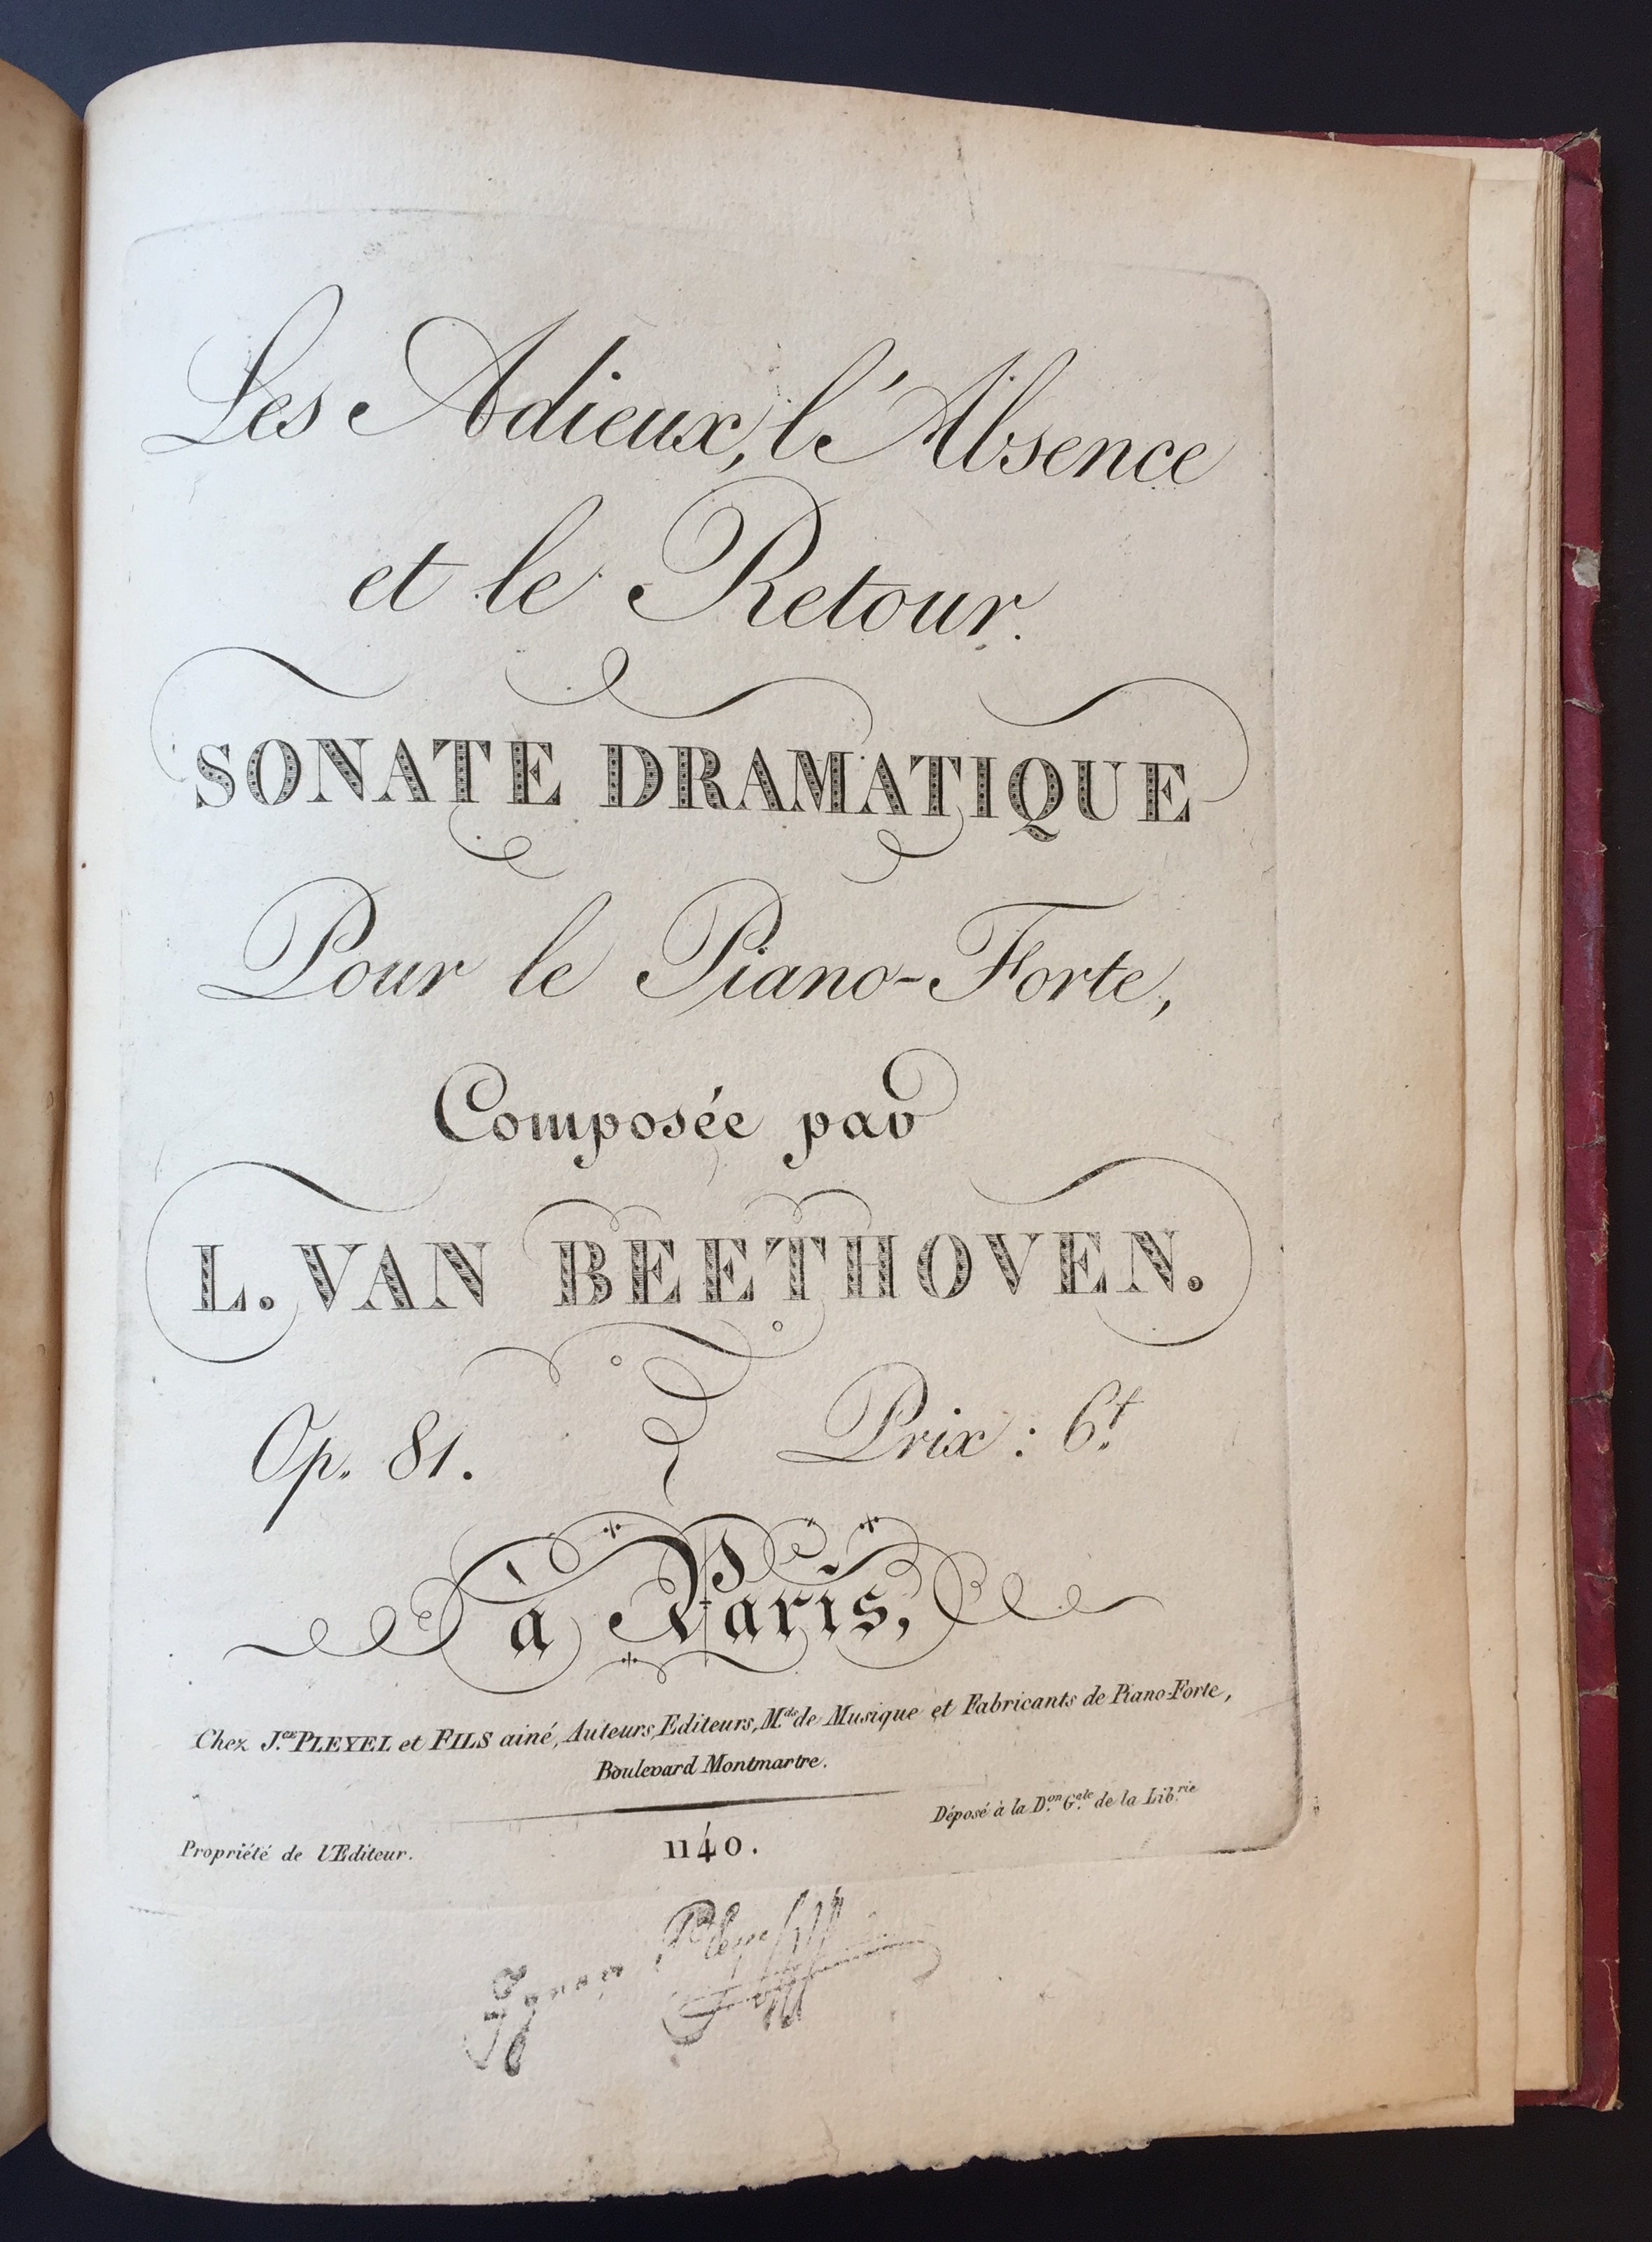 Les Adieux, l'Absence
et le Retour.
SONATE DRAMATIQUE
Pour le Piano-Forte,
Composée par
L. VAN BEETHOVEN.
Op. 81. Prix : 6.f
à Paris,
Chez J.ce PLEYEL et FILS ainé, Auteurs, Editeurs, M.ds de Musique et Fabricants de Piano-Forte,
Boulevard Montmartre.
Déposé à la D.on G.ale de la Lib.rie
Propriété de l'Editeur. 1140.
Ignace Pleyel